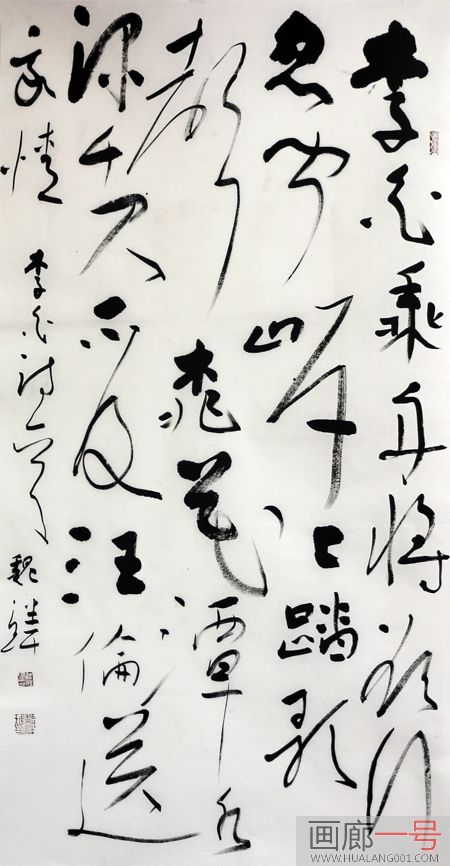 李白乘舟将欲行
忽闻岸上踏歌
声桃花潭水
深千尺不及汪倫送
我情
李白诗一首 魏
画廊一号
WWW.HUALANG001.COM